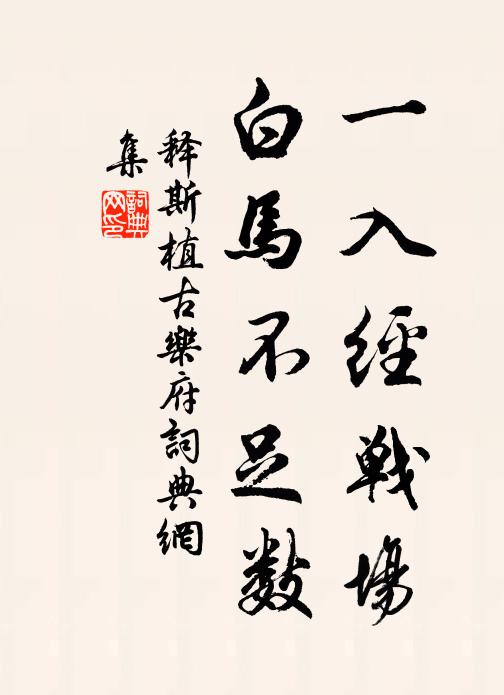 一入經戰場
白馬不足數
释斯植古樂府詞典網
集
詞典网印